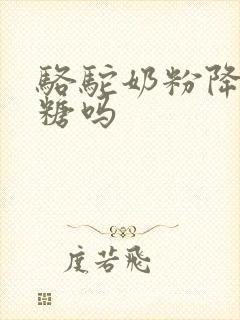 骆驼奶粉降
糖吗
度若飛